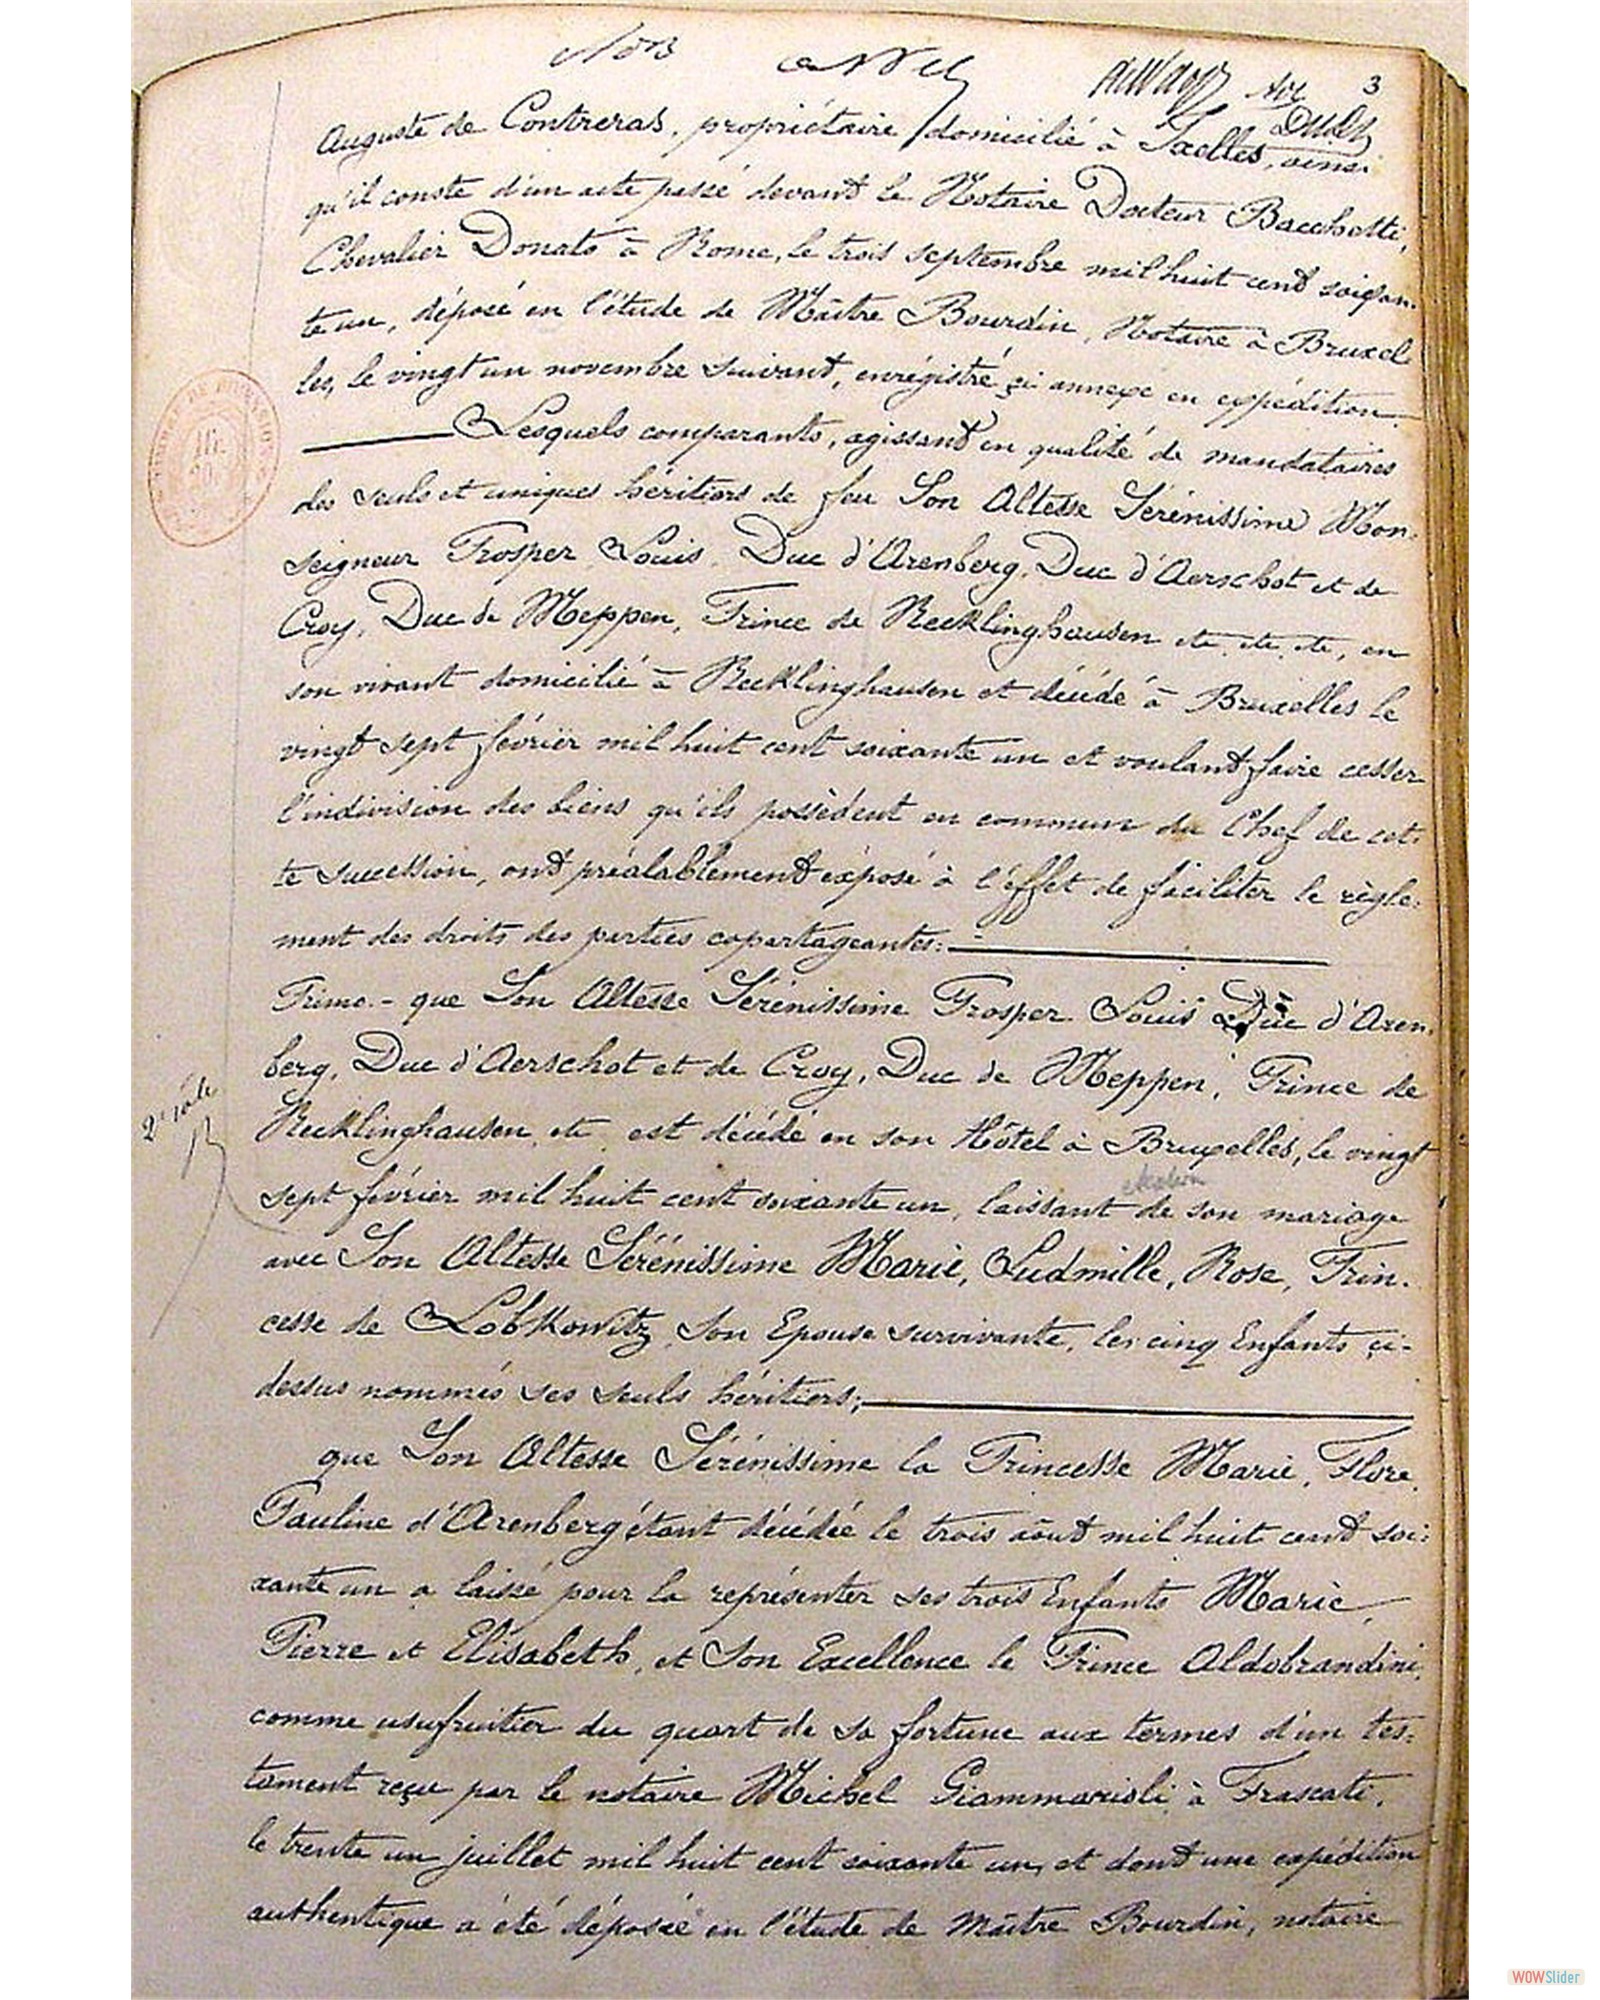 3
Auguste de Contreras, propriétaire domicilié à Ixelles, ainsi
qu'il conste d'un acte passé devant le Notaire Docteur Bacchetti,
Chevalier Donato à Rome, le trois septembre mil huit cent soixan-
te un, déposé en l'étude de Maître Bourdin, Notaire à Bruxel
les, le vingt un novembre suivant, enrégistré çi annexe en expédition.
Lesquels comparants, agissant en qualité de mandataires
des seuls et uniques héritiers de feu Son Altesse Sérénissime Mon-
seigneur Prosper Louis, Duc d'Arenberg, Duc d'Aerschot et de
Croy, Duc de Meppen, Prince de Recklinghausen etc. etc. etc., en
son vivant domicilié à Recklinghausen et décédé à Bruxelles le
vingt sept février mil huit cent soixante un et voulant faire cesser
l'indivision des biens qu'ils possèdent en commun du Chef de cet-
te succession, ont préalablement éxposé à l'éffet de faciliter le règle-
ment des droits des parties copartageantes:
Primo.- que Son Altesse Sérénissime Prosper Louis Duc d'Aren-
berg, Duc d'Aerschot et de Croy, Duc de Meppen, Prince de
2e rôle
Recklinghausen, etc est décédé en son Hôtel à Bruxelles, le vingt
sept février mil huit cent soixante un, laissant de son mariage
avec Son Altesse Sérénissime Marie, Ludmille, Rose, Prin-
cesse de Lobkowitz, Son Epouse survivante, les cinq Enfants çi-
dessus nommés ses seuls héritiers;
que Son Altesse Sérénissime la Princesse Marie, Flore,
Pauline d'Arenberg étant décédée le trois août mil huit cent soi-
xante un a laissé pour la représenter ses trois Enfants Marie,
Pierre et Elisabeth, et Son Excellence le Prince Aldobrandini,
comme usufruitier du quart de sa fortune aux termes d'un tes-
tament reçu par le notaire Michel Giammarioli à Frascati,
le trente un juillet mil huit cent soixante un, et dont une expédition
authentique a été déposée en l'étude de Maître Bourdin, notaire
WOWSlider